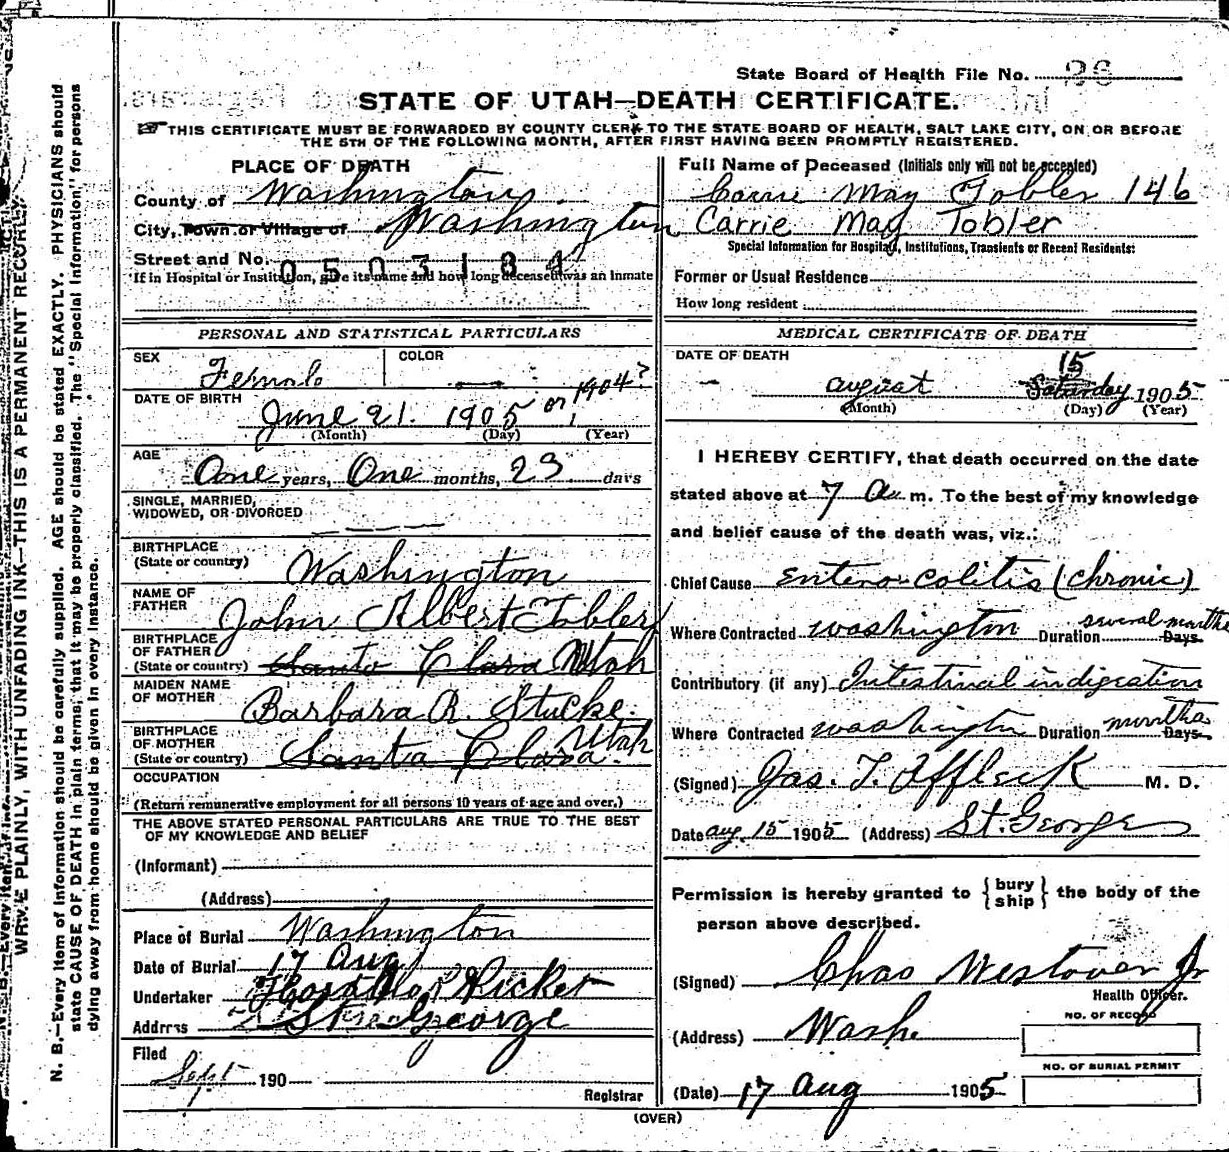 State Board of Health File No. 26
STATE OF UTAH—DEATH CERTIFICATE.
THIS CERTIFICATE MUST BE FORWARDED BY COUNTY CLERK TO THE STATE BOARD OF HEALTH, SALT LAKE CITY, ON OR BEFORE
THE 5TH OF THE FOLLOWING MONTH, AFTER FIRST HAVING BEEN PROMPTLY REGISTERED.
PLACE OF DEATH
County of Washington
City, Town or Village of Washington
Street and No.
0503184
If in Hospital or Institution, give its name and how long deceased was an inmate
Full Name of Deceased (Initials only will not be accepted)
Carrie May Tobler 146
Carrie May Tobler
Special Information for Hospital, Institutions, Transients or Recent Residents:
Former or Usual Residence
How long resident
PERSONAL AND STATISTICAL PARTICULARS
SEX Female COLOR —
DATE OF BIRTH
June 21. 1905 or 1904?
(Month) (Day) (Year)
AGE
One years, One months, 23 days
SINGLE, MARRIED,
WIDOWED, OR DIVORCED
BIRTHPLACE
(State or country) Washington
NAME OF
FATHER John Albert Tobler
BIRTHPLACE
OF FATHER
(State or country) Santa Clara Utah
MAIDEN NAME
OF MOTHER Barbara R. Stucke.
BIRTHPLACE
OF MOTHER
(State or country) Santa Clara. Utah
OCCUPATION
(Return remunerative employment for all persons 10 years of age and over.)
THE ABOVE STATED PERSONAL PARTICULARS ARE TRUE TO THE BEST
OF MY KNOWLEDGE AND BELIEF
(Informant)
(Address)
Place of Burial Washington
Date of Burial 17 Aug
Undertaker
Address St George
Filed
Sept 190
Registrar
MEDICAL CERTIFICATE OF DEATH
DATE OF DEATH
15
august Saturday 1905
(Month) (Day) (Year)
I HEREBY CERTIFY, that death occurred on the date
stated above at 7 a m. To the best of my knowledge
and belief cause of the death was, viz.:
Chief Cause Entero-colitis (chronic)
Where Contracted washington Duration several months Days
Contributory (if any) Intestinal indigestion
Where Contracted washington Duration months Days
(Signed) Jas. T. Affleck M. D.
Date aug. 15 1905 (Address) St. George
Permission is hereby granted to {bury ship} the body of the
person above described.
(Signed) Chas Westover Jr
Health Officer.
(Address) Wash.
NO. OF RECORD
NO. OF BURIAL PERMIT
(Date) 17 Aug 1905
(OVER)
WRITE PLAINLY, WITH UNFADING INK—THIS IS A PERMANENT RECORD.
N. B.—Every item of information should be carefully supplied. AGE should be stated EXACTLY. PHYSICIANS should
state CAUSE OF DEATH in plain terms, that it may be properly classified. The "Special Information" for persons
dying away from home should be given in every instance.